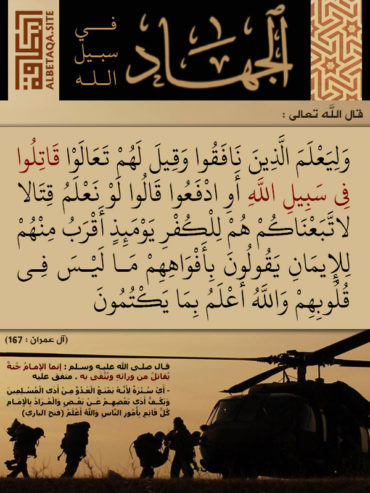 البطاقة
ALBETAQA.SITE
الجهاد
في
سبيل
الله
قال الله تعالى :
وَلِيَعْلَمَ الَّذِينَ نَافَقُوا وَقِيلَ لَهُمْ تَعَالَوْا قَاتِلُوا
فِي سَبِيلِ اللَّهِ أَوِ ادْفَعُوا قَالُوا لَوْ نَعْلَمُ قِتَالًا
لَاتَّبَعْنَاكُمْ هُمْ لِلْكُفْرِ يَوْمَئِذٍ أَقْرَبُ مِنْهُمْ
لِلْإِيمَانِ يَقُولُونَ بِأَفْوَاهِهِمْ مَا لَيْسَ فِي
قُلُوبِهِمْ وَاللَّهُ أَعْلَمُ بِمَا يَكْتُمُونَ
(آل عمران : 167)
قال صلى الله عليه وسلم : إنما الإمامُ جُنةٌ
يُقاتَلُ من ورائه ويُتَّقى به . متفق عليه
- أيْ سُتْرَةٌ لأنَّهُ يَمْنَعُ الْعَدُوَّ مِنْ أَذَى الْمُسْلِمِينَ
وَيَكُفُّ أَذَى بَعْضِهِمْ عَنْ بَعْضٍ وَالْمُرَادُ بِالْإِمَامِ
كُلُّ قَائِمٍ بِأُمُورِ النَّاسِ وَاللهُ أَعْلَمُ (فتح الباري)